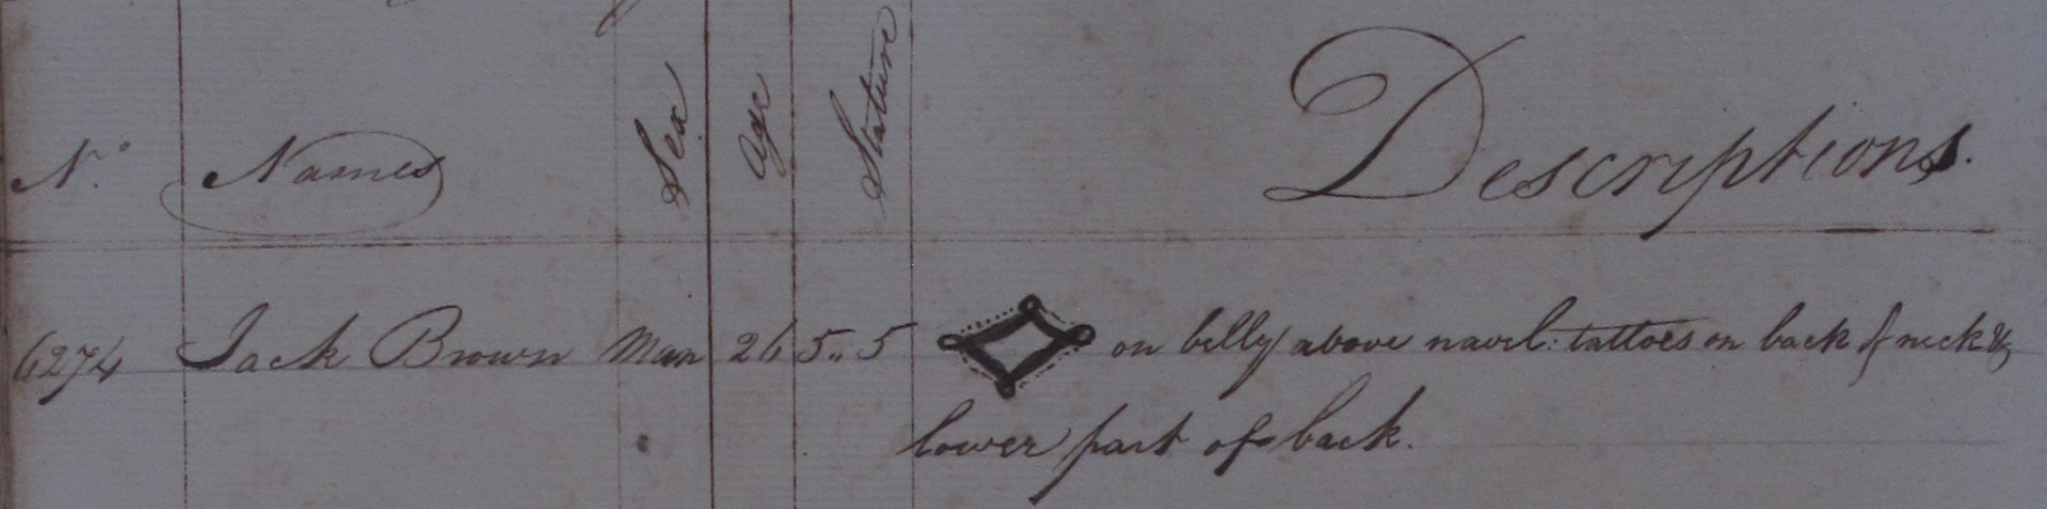 No. Names Sex Age Stature Descriptions.
6274 Jack Brown Man 26 5.. 5 on belly above navel: tattoes on back of neck &
lower part of back.